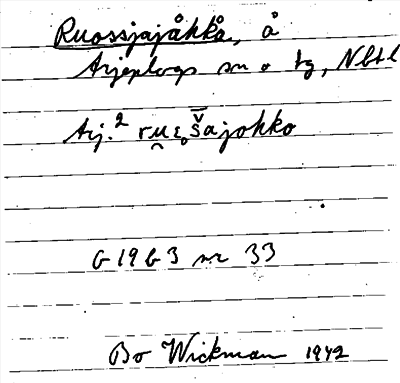 Ruossjajåkkå, å
Arjeplogs sn o tg, Nbtl
Arj.² ru̯ε̥š̄ajohko
G 19 b 3 nr 33
Bo Wickman 1942